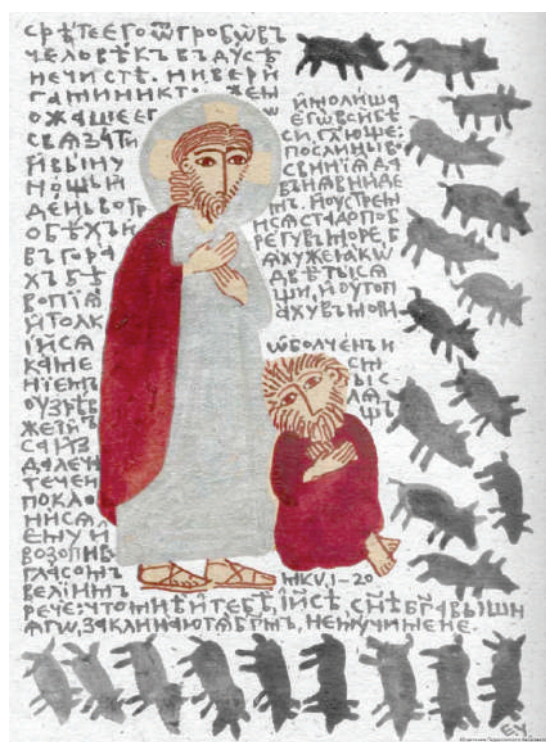 СРѢТЕ ЕГО Ѿ ГРОБѠВЪ
ЧЕЛОВѢКЪ ВЪ ДУСѢ
НЕЧИСТѢ. НИ ВЕРИ
ГАМИ НИКТО ЖЕ М
ОЖАШЕ ЕГѠ
СВѦЗАТИ
Й ВЫНУ
НОЩЬ Й
ДЕНЬ ВО ГР
ОБѢХЪ Й
ВЪ ГОРА
ХЪ БѢ
ВОПІѦ
Й ТОЛК
ІЙСѦ
КАМЕ
НІЕМЪ
ОУЗРѢВ
ЖЕ ІЙ
СА ИЗ
ДАЛЕЧ
ТЕЧЕ Й
ПОКЛО
НИСѦ
ЕМУ Й
ВОЗОПИВ
ГЛАСОМЪ
ВЕЛІИМЪ
РЕЧЕ: ЧТО МНѢ Й ТЕБѢ, ІЙСЕ, СН҃Ѣ БГ҃А ВЫШН
ѦГѠ, ЗАКЛИНАЮ ТѦ БГ҃МЪ, НЕ МУЧИ МЕНЕ.
Й МОЛИША
ЕГѠ ВСИ БѢ
СИ, ГЛ҃ЮЩЕ:
ПОСЛИ НЫ ВО
СВИНІѦ ДА
ВЪ НѦ ВНИДЕ
МЪ. Й ОУСТРЕМ
ИСѦ СТАДО ПО Б
РЕГУ ВЪ МОРЕ, Б
ѦХУ ЖЕ ЯКѠ
ДВѢ ТЫСѦ
ЩИ, Й ОУТОП
АХУ ВЪ МОРИ
ѠБОЛЧЕНЪ И
СМ
ЫС
ЛѦ
ЩЪ
МК V, 1-20
ЕУ